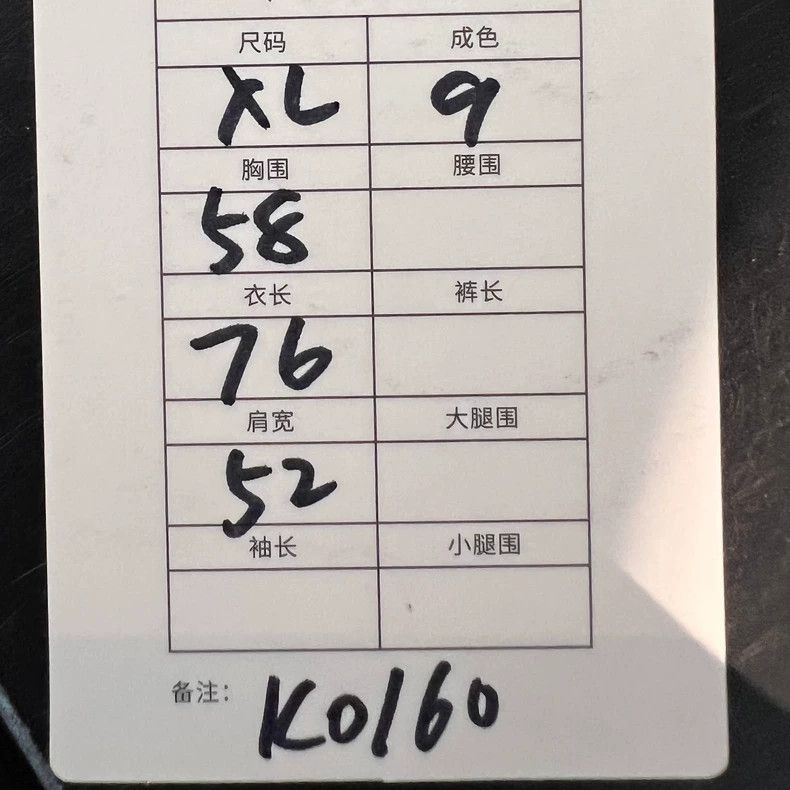 尺码 成色
XL 9
胸围 腰围
58
衣长 裤长
76
肩宽 大腿围
52
袖长 小腿围
备注: K0160